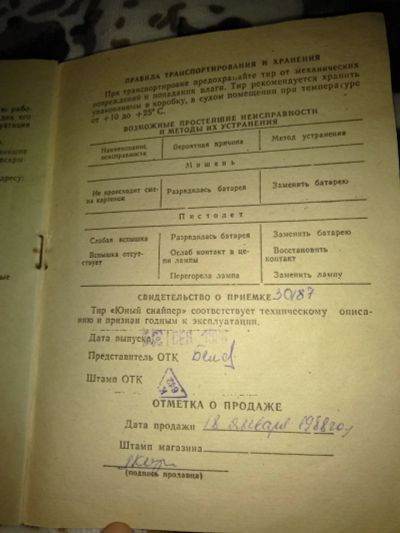 ПРАВИЛА ТРАНСПОРТИРОВАНИЯ И ХРАНЕНИЯ
При транспортировке предохраняйте тир от механических
повреждений и попадания влаги. Тир рекомендуется хранить
упакованным в коробку, в сухом помещении при температуре
от +10 до +25° С.
ВОЗМОЖНЫЕ ПРОСТЕЙШИЕ НЕИСПРАВНОСТИ
И МЕТОДЫ ИХ УСТРАНЕНИЯ
Наименование неисправности Вероятная причина Метод устранения
Мишень
Не происходит смена картинок Разрядилась батарея Заменить батарею
Пистолет
Слабая вспышка Разрядилась батарея Заменить батарею
Вспышка отсутствует Ослаб контакт в цепи лампы Восстановить контакт
Перегорела лампа Заменить лампу
СВИДЕТЕЛЬСТВО О ПРИЕМКЕ 30/87
Тир «Юный снайпер» соответствует техническому описанию и признан годным к эксплуатации.
Дата выпуска
Представитель ОТК
Штамп ОТК
ОТМЕТКА О ПРОДАЖЕ
Дата продажи 18 января 1988год
Штамп магазина
(подпись продавца)